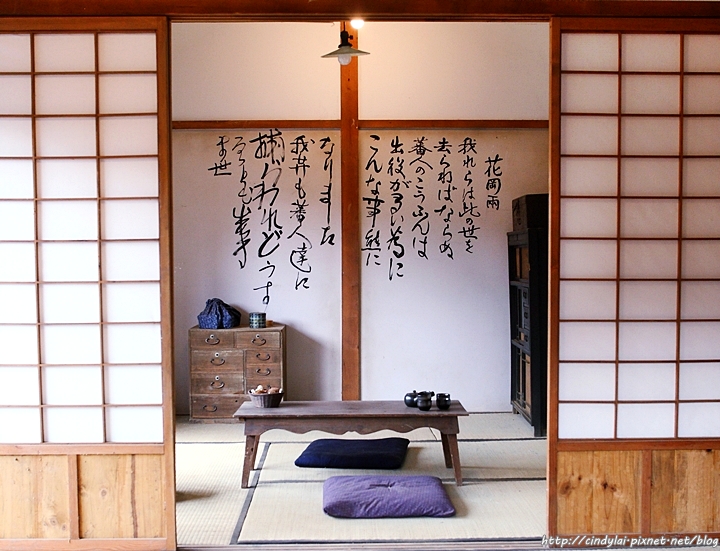 花岡両
我れらは此の世を
去らねばならぬ
蕃人のこうふんは
出役が多い為に
こんな事件に
なりました
我等も蕃人達に
捕はれどうす
ることも出来
http://cindylai-pixnet-net/blog